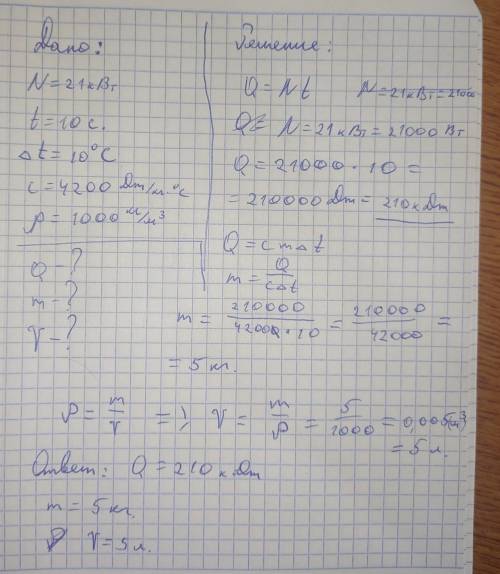 Дано:
N = 21 кВт
t = 10 с.
Δt = 10°C
c = 4200 Дж/кг·°C
ρ = 1000 кг/м³
Q - ?
m - ?
V - ?
Решение:
Q = Nt N = 21 кВт = 21000
Q = N = 21 кВт = 21000 Вт
Q = 21000 · 10 =
= 210000 Дж = 210 кДж
Q = cmΔt
m = Q/cΔt
m = 210000/4200 · 10 = 210000/42000 =
= 5 кг.
ρ = m/V => V = m/ρ = 5/1000 = 0,005 (м³)
= 5 л.
Ответ: Q = 210 кДж
m = 5 кг.
V = 5 л.